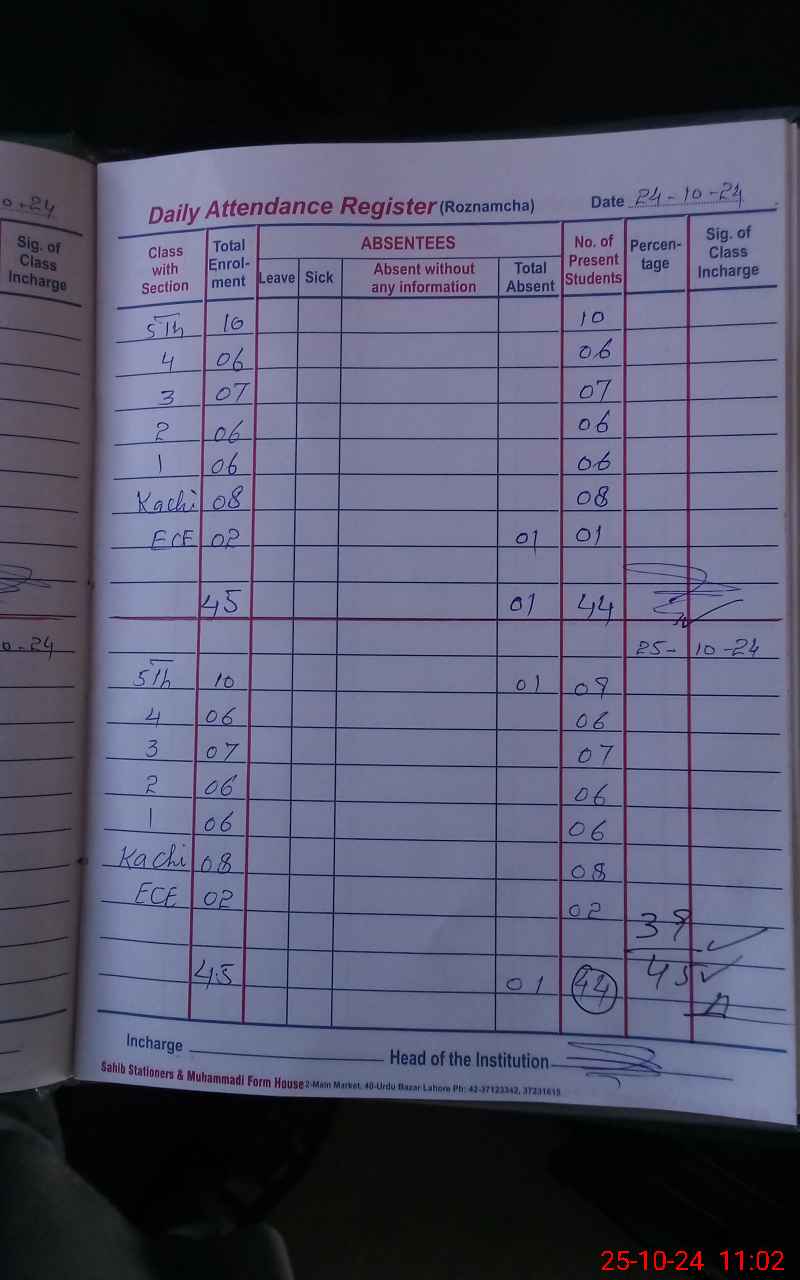 0-24
Sig. of
Class
Incharge
0-24
Daily Attendance Register (Roznamcha)
Date 24-10-24
Class with Section | Total Enrol-ment | ABSENTEES | No. of Present Students | Percen-tage | Sig. of Class Incharge
Leave | Sick | Absent without any information | Total Absent
5th 10 10
4 06 06
3 07 07
2 06 06
1 06 06
Kachi 08 08
ECE 02 01 01
45 01 44
25-10-24
5th 10 01 09
4 06 06
3 07 07
2 06 06
1 06 06
Kachi 08 08
ECE 02 02
39
45 01 44 45
Incharge
Head of the Institution
Sahib Stationers & Muhammadi Form House 2-Main Market, 40-Urdu Bazar Lahore Ph: 42-37123342, 37231615
25-10-24 11:02